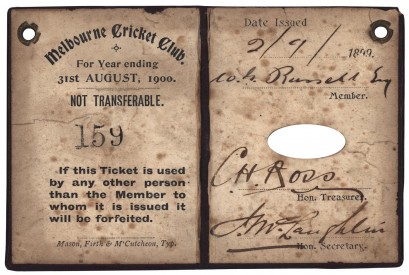 Melbourne Cricket Club.
For Year ending
31ST AUGUST, 1900.
NOT TRANSFERABLE.
159
If this Ticket is used
by any other person
than the Member to
whom it is issued it
will be forfeited.
Mason, Firth & M'Cutcheon, Typ.
Date Issued
2/9/ 1899.
W. Russell Esq
Member.
C.H. Ross
Hon. Treasurer.
McLaughlin
Hon. Secretary.